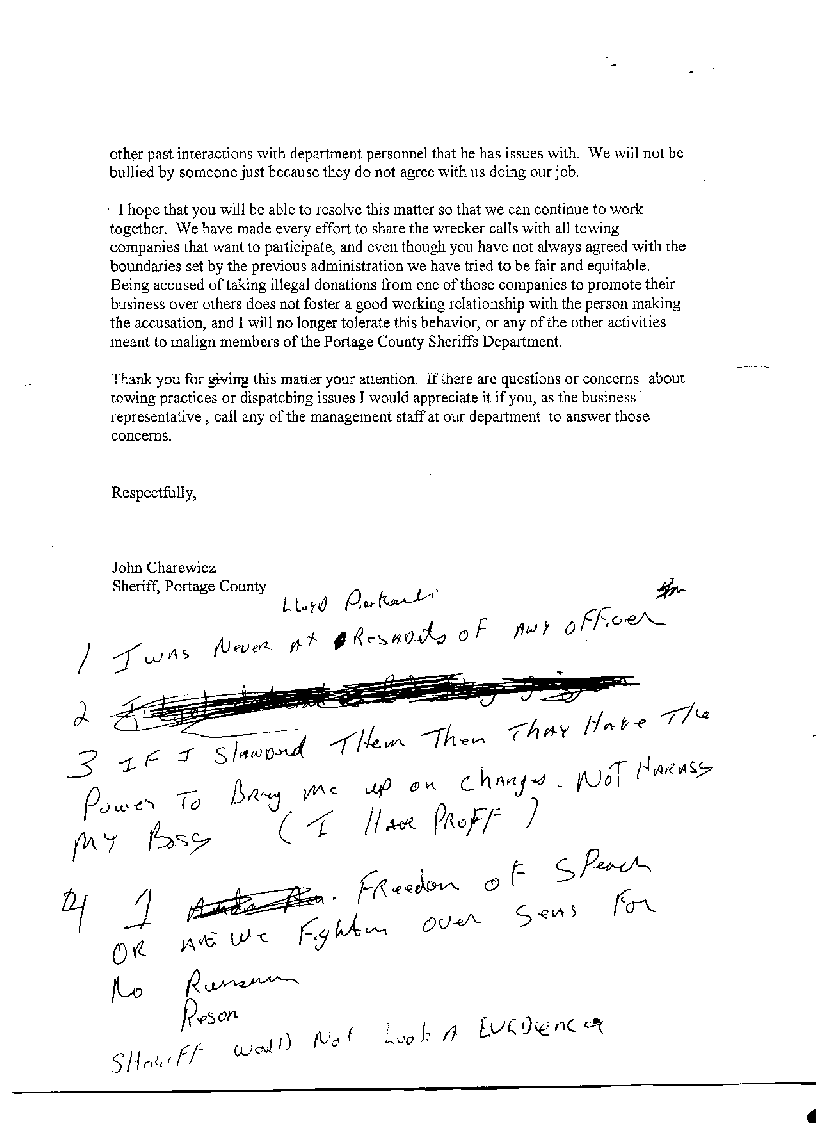 other past interactions with department personnel that he has issues with. We will not be
bullied by someone just because they do not agree with us doing our job.
I hope that you will be able to resolve this matter so that we can continue to work
together. We have made every effort to share the wrecker calls with all towing
companies that want to participate, and even though you have not always agreed with the
boundaries set by the previous administration we have tried to be fair and equitable.
Being accused of taking illegal donations from one of those companies to promote their
business over others does not foster a good working relationship with the person making
the accusation, and I will no longer tolerate this behavior, or any of the other activities
meant to malign members of the Portage County Sheriffs Department.
Thank you for giving this matter your attention. If there are questions or concerns about
towing practices or dispatching issues I would appreciate it if you, as the business
representative , call any of the management staff at our department to answer those
concerns.
Respectfully,
John Charewicz
Sheriff, Portage County
Lloyd
1 I was Never At of Any officer
2
3 IF I Them Then They Have The
Power To Bring me up on Charges. NOT HARASS
MY Boss ( I HAVE PROFF )
4 1 FReedom of SPeach
OR ARE we Fighten over Sens For
No
Reson
SHeriFF Would Not Look A EVEDENCE